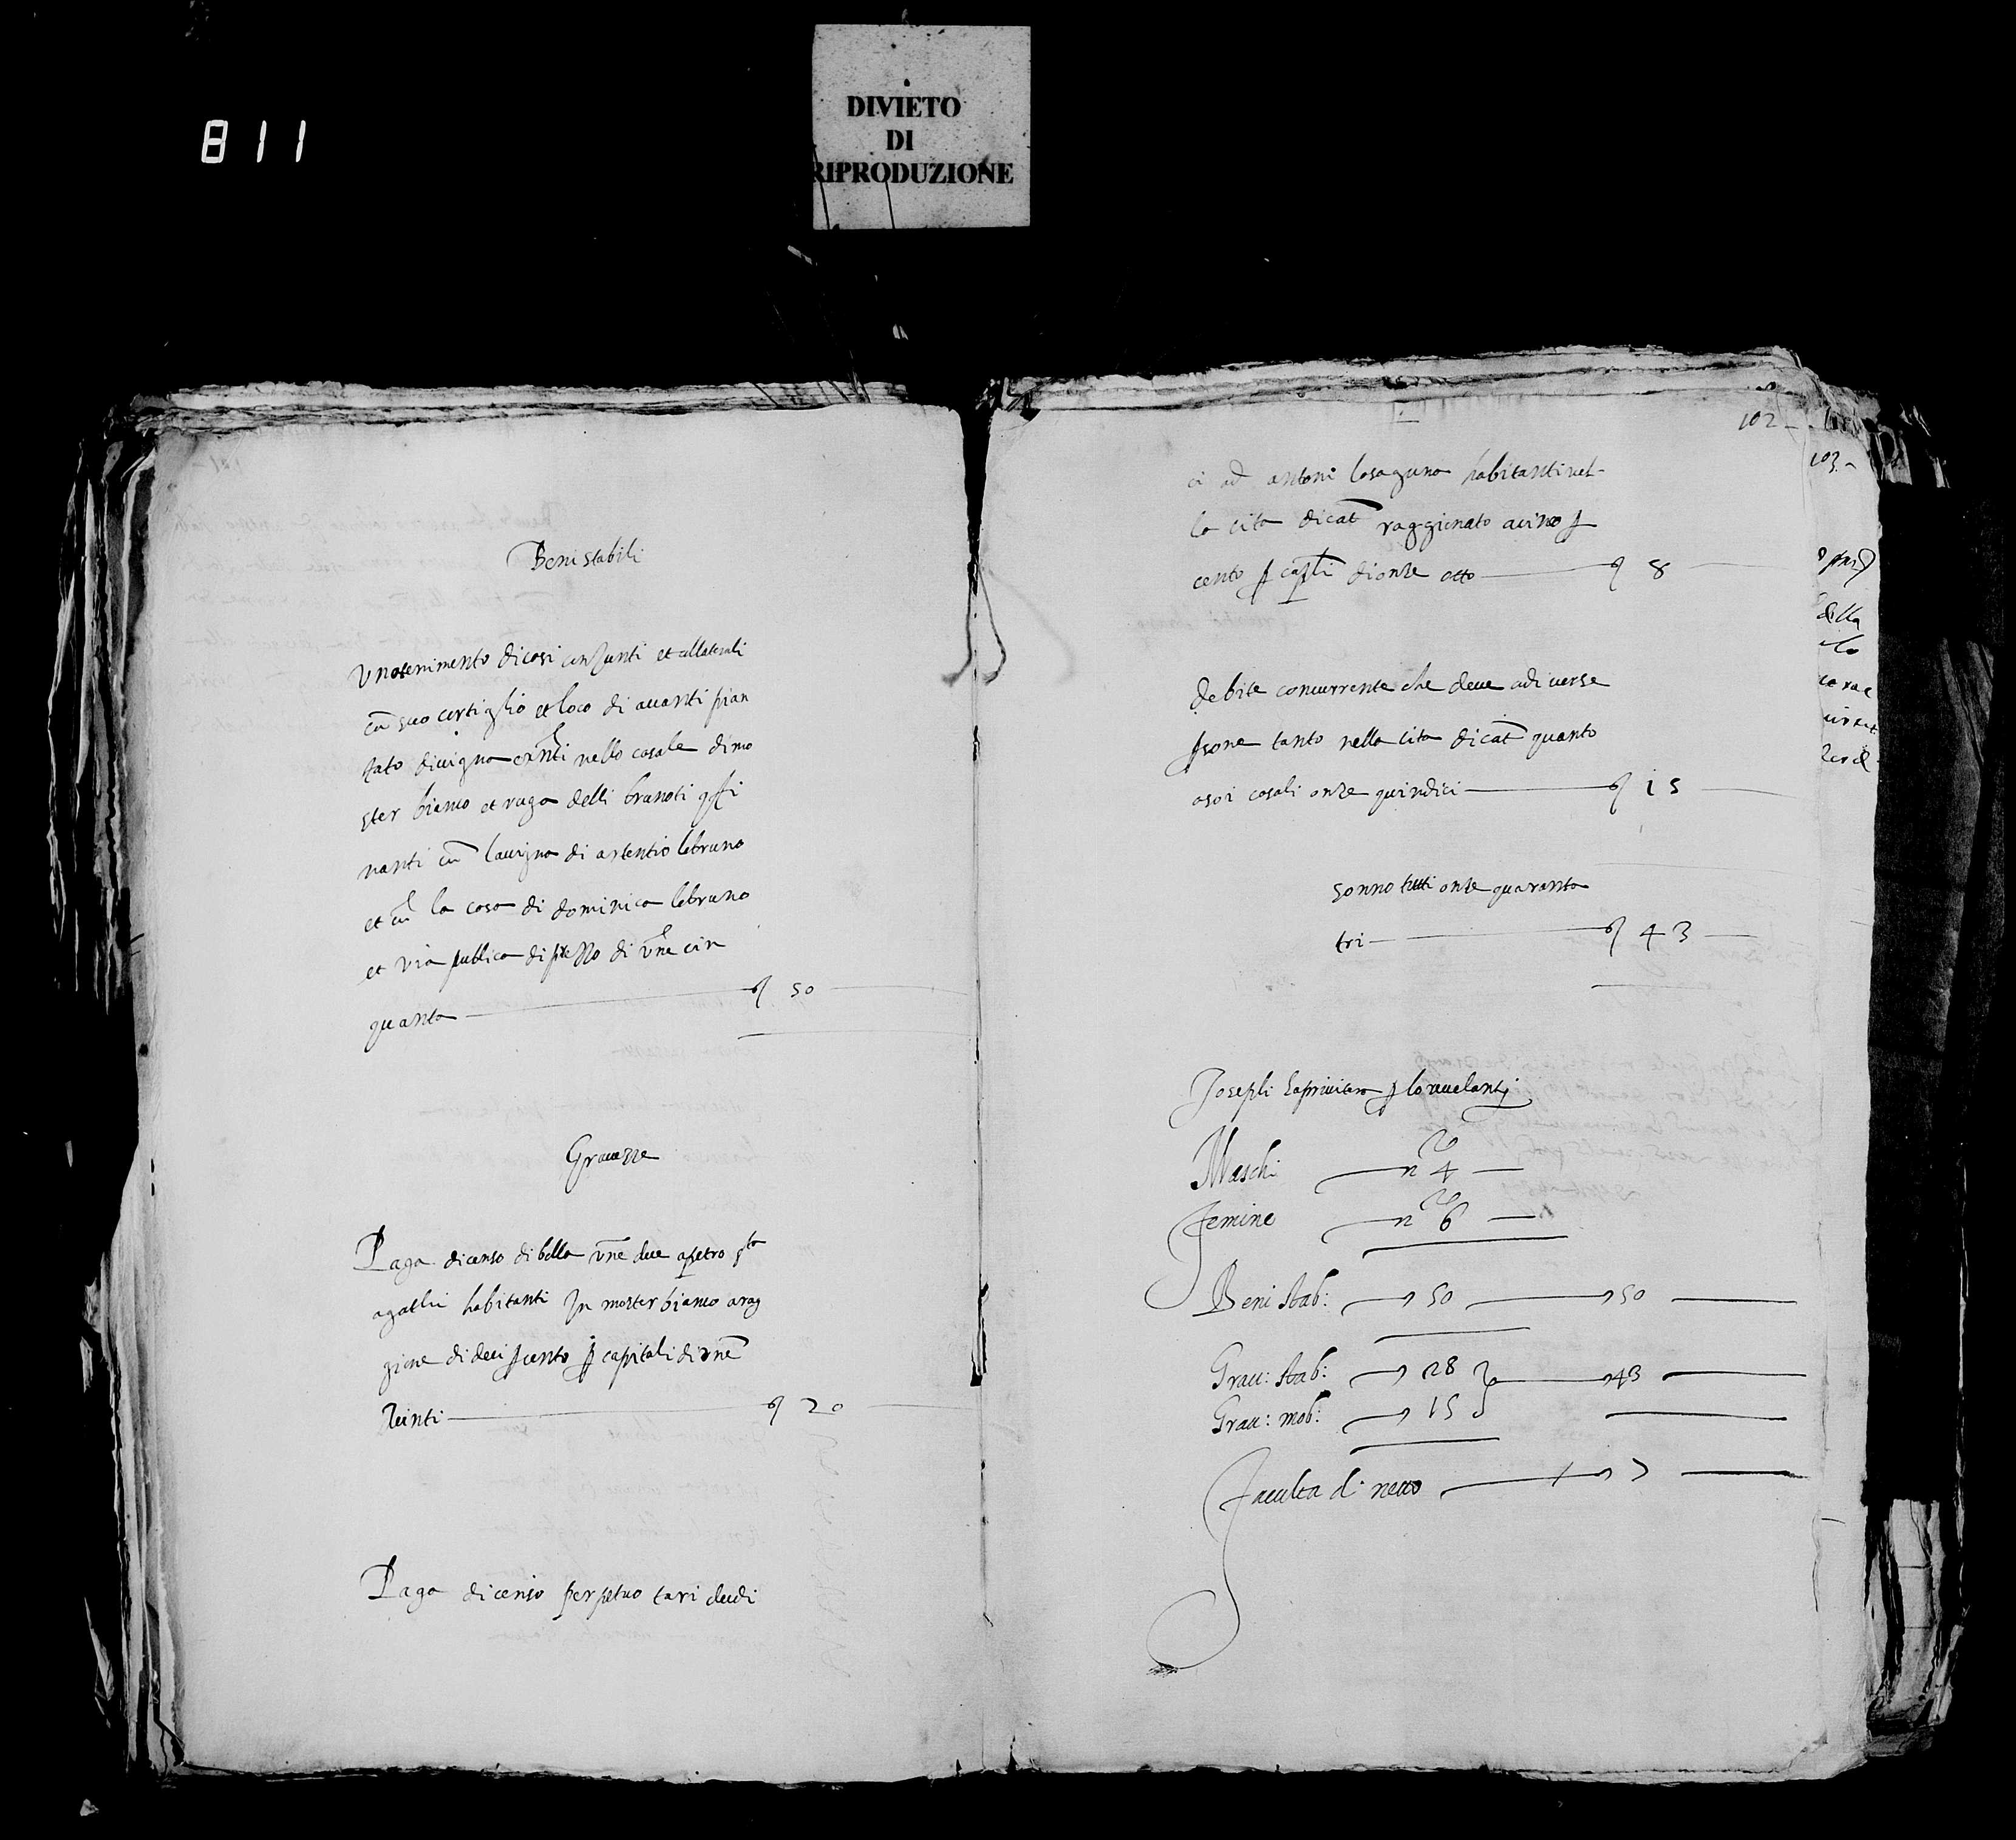 811
DIVIETO
DI
RIPRODUZIONE
Beni stabili
Uno tenimento di casi conjunti et collaterali
cū suo cortiglio et loco di avanti pian
tato di vigna nello casale di mo
ster bianco et ruga delli brunoti
nanti cū la vigna di lebruno
et cū la casa di dominica lebruno
et via publica di prezzo di une cin
quanta 50
Gravezze
Paga di censo di bolla une due a petro sta
agathi habitanti In monster bianco a rag
gione di deci per cento per capitali di une
Vinti 20
Paga di censo perpetuo tari dudi
102
ci ad antoni habitanti nel
la cita di cat raggionato a cinco per
cento per capli di onze otto 8
debite concurrente che deve a diverse
persone tanto nella cita di cat quanto
a soi casali onze quindici 15
sonno tutti onze quaranta
tri 43
Joseph Laprivitera per lo revelanti
Maschi no 4
Femine no 6
Beni stab: 50 50
Grav: stab: 28 43
Grav: mob: 15
Faculta di netto 7
103
della